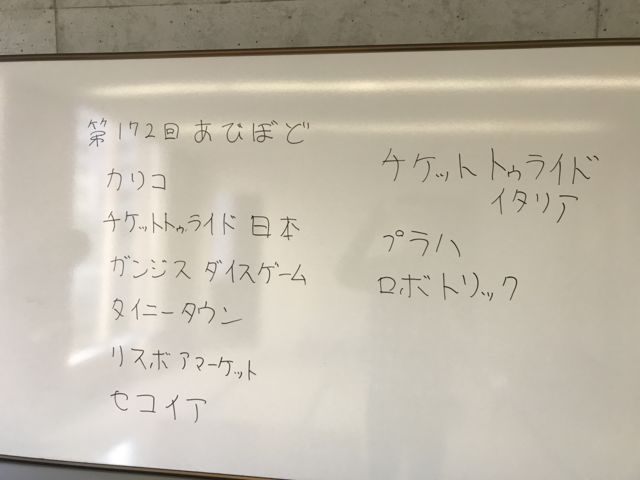 第172回 あびぼど
カリコ
チケットトゥライド 日本
ガンジス ダイスゲーム
タイニータウン
リスボアマーケット
セコイア
チケット トゥライド
イタリア
プラハ
ロボトリック